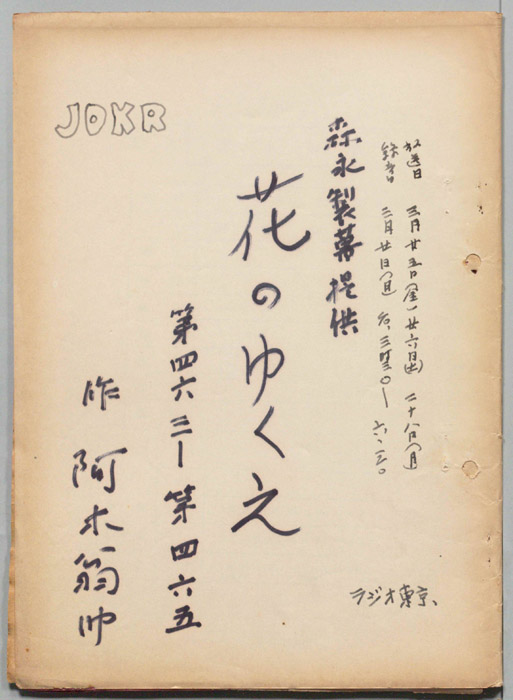 JOKR
放送日 三月廿五日(金)廿六日(土)二十八日(月)
録音日 三月廿日(日)
森永製菓提供
花のゆくえ
第四六三ー第四六五
作 阿木翁助
ラジオ東京、